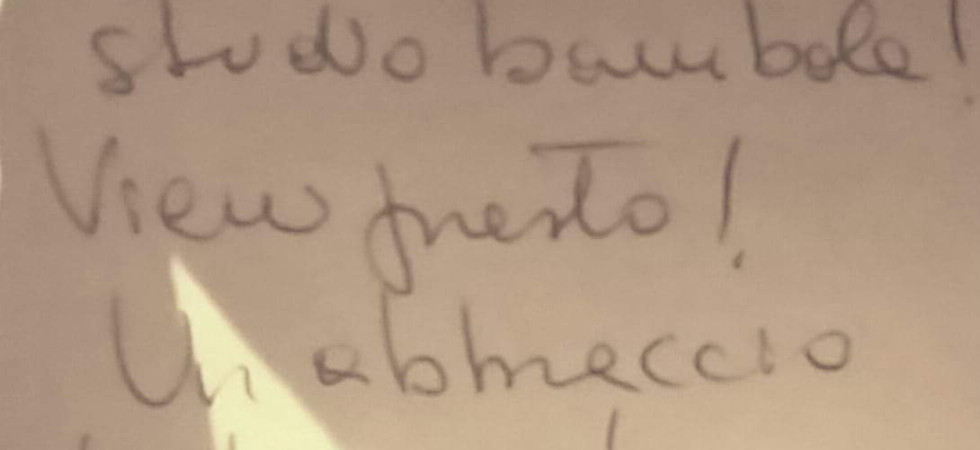 studio bambole!
Vieni presto!
Un abbraccio